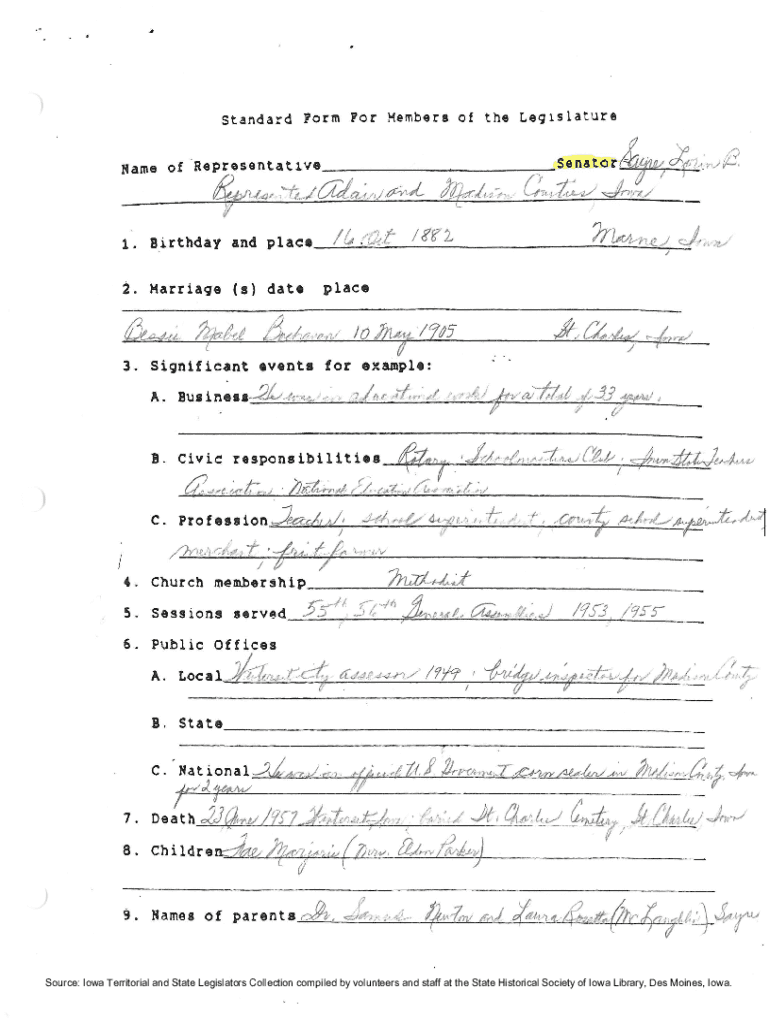 Standard Form For Members of the Legislature
Name of Representative Senator Sayre, Lorin B.
Represented Adair and Madison Counties, Iowa
1. Birthday and place 16 Oct 1882 Marne, Iowa
2. Marriage (s) date place
Bessie Mabel 10 May 1905 St. Charles, Iowa
3. Significant events for example:
A. Business He was in educational work for a total of 33 years.
B. Civic responsibilities Rotary; Schoolmasters Club; Iowa State Teachers
Association; National Education Association
C. Profession Teacher; school superintendent; county school superintendent
merchant; fruit farmer
4. Church membership Methodist
5. Sessions served 55th, 56th General Assemblies 1953, 1955
6. Public Offices
A. Local Winterset city assessor 1949; bridge inspector for Madison County
B. State
C. National He was an official U.S. Government corn sealer in Madison County, Iowa
for 2 years
7. Death 23 June 1957 Winterset, Iowa; buried St. Charles Cemetery, St. Charles, Iowa
8. Children Fae Marjorie (Mrs. Eldon Parker)
9. Names of parents Dr. Samuel Newton and Laura Rosetta (McLaughlin) Sayre
Source: Iowa Territorial and State Legislators Collection compiled by volunteers and staff at the State Historical Society of Iowa Library, Des Moines, Iowa.